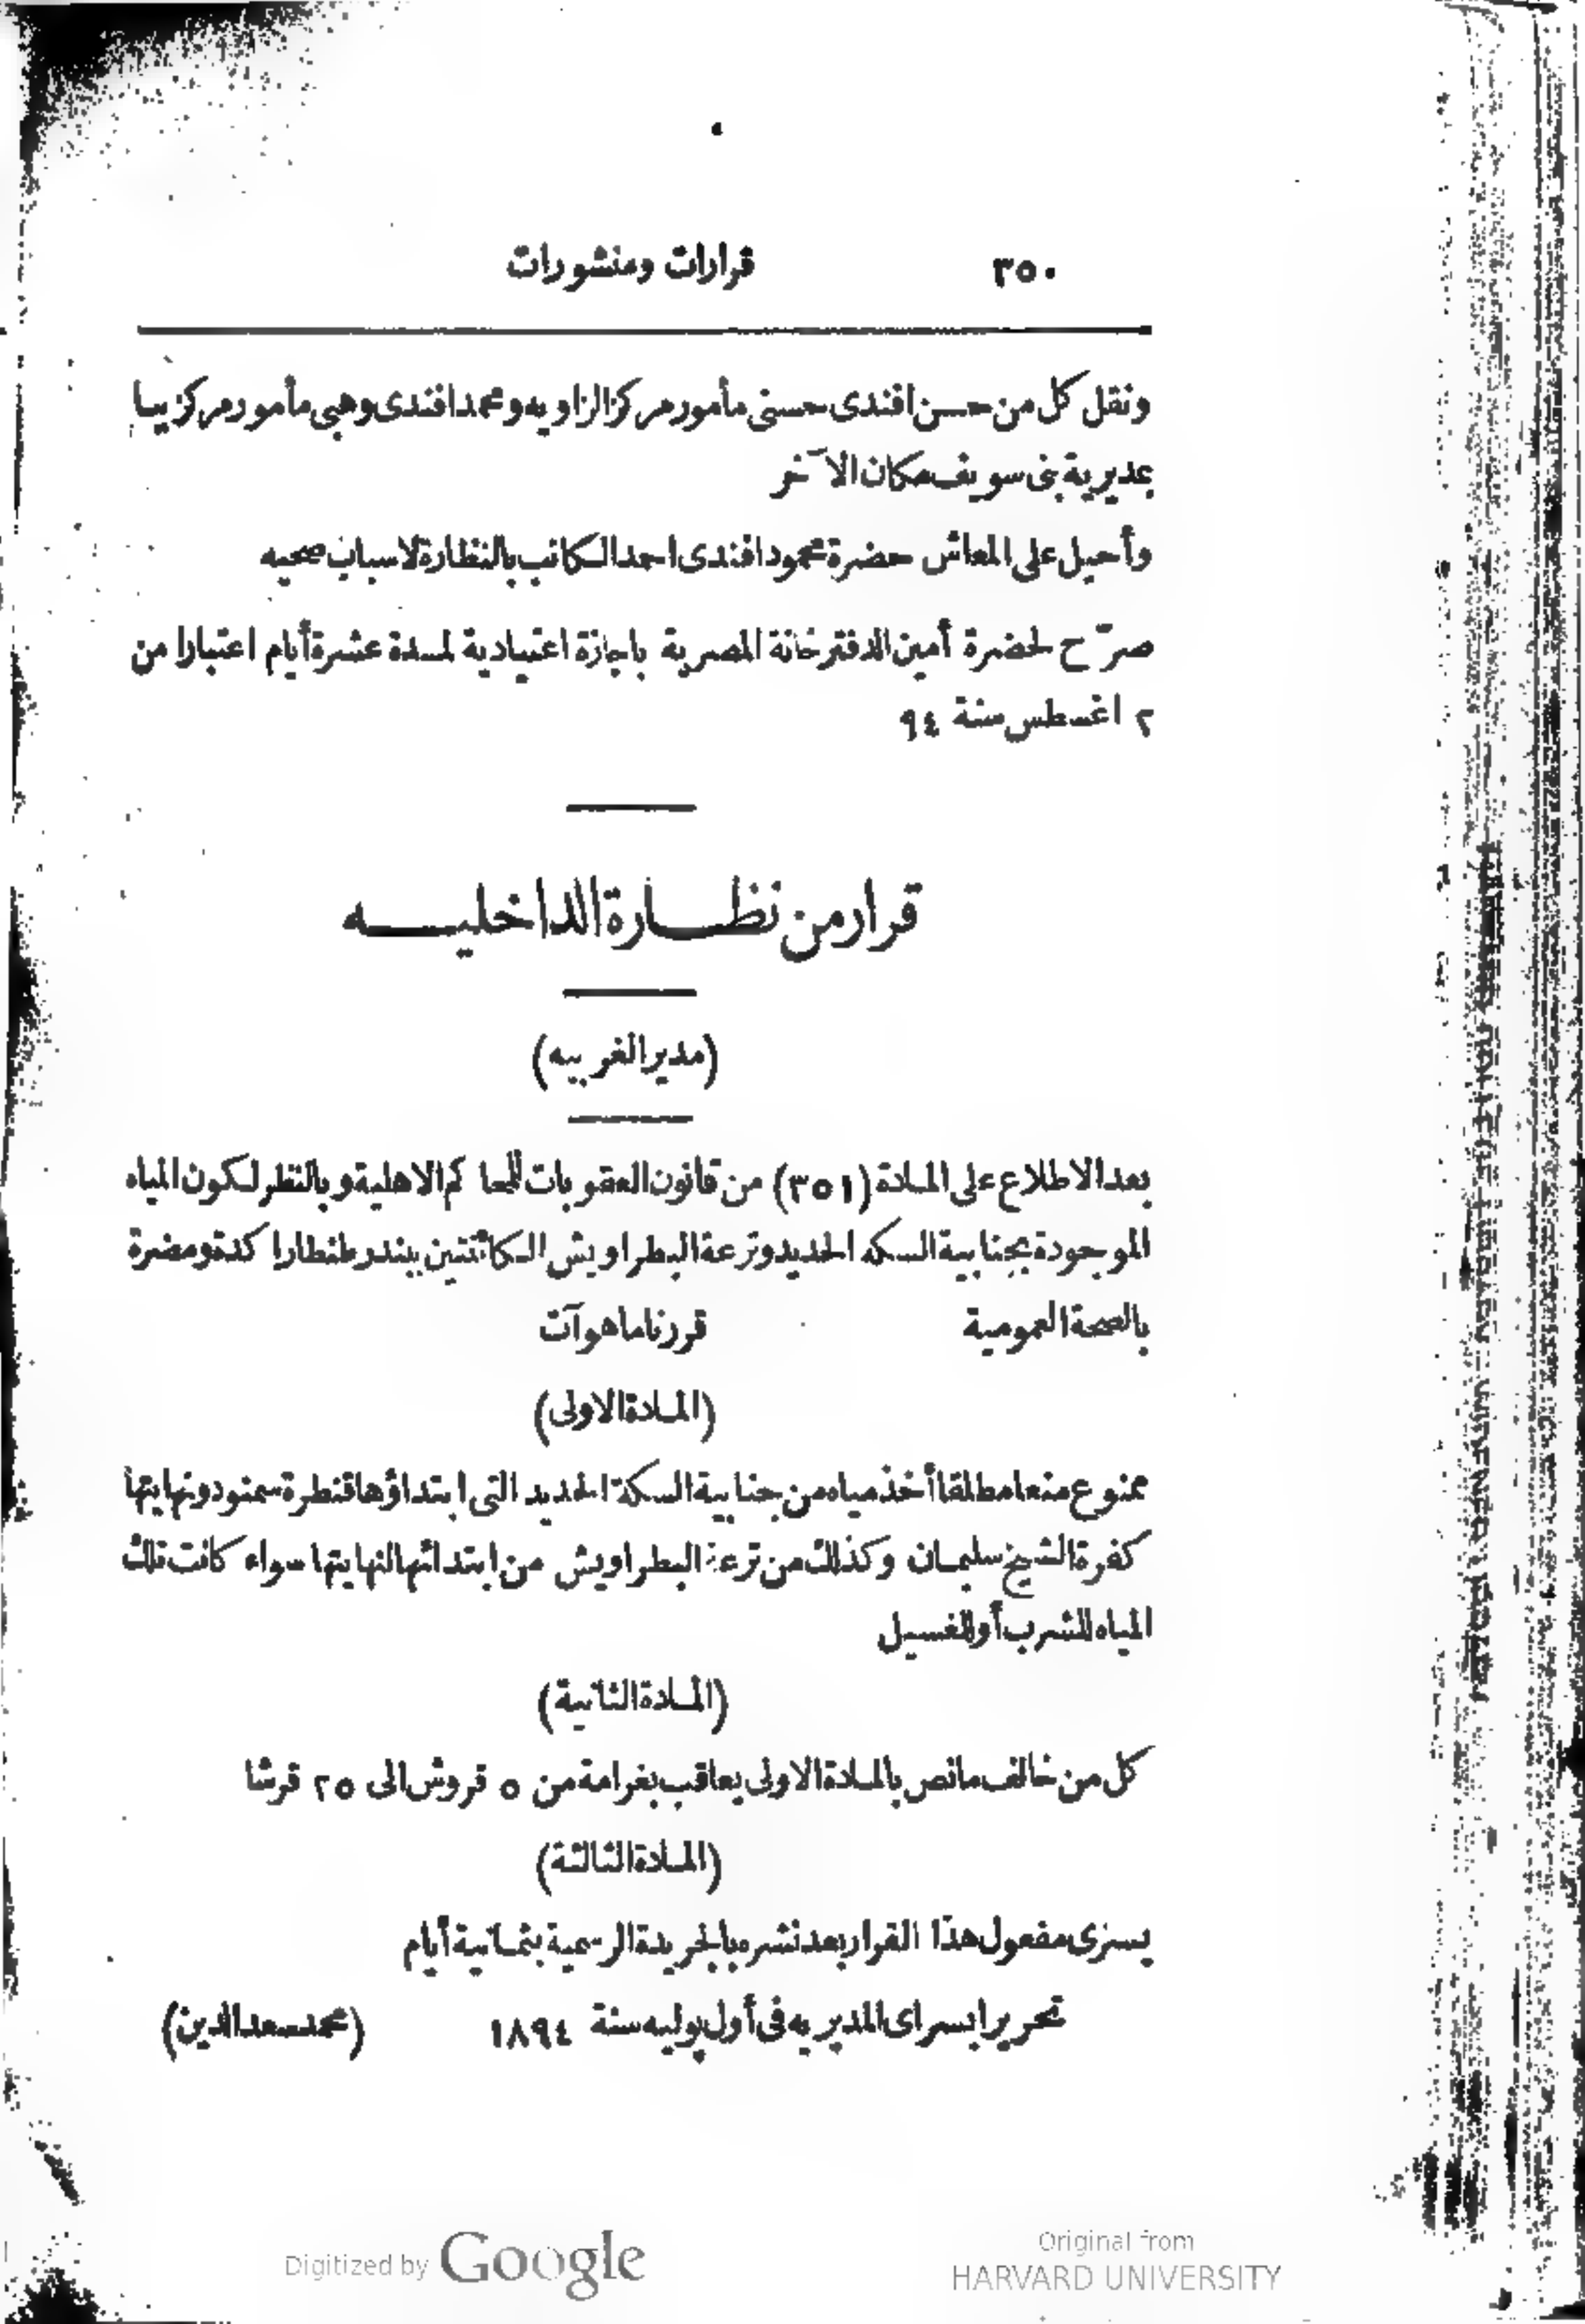 ٣٥٠ قرارات ومنشورات
ونقل كل من حسن افندى حسنى مأمور مركز الزاويه ومحمد افندى وهبى مأمور مركز ببا
بمديرية بنى سويف مكان الآخر
وأحيل على المعاش حضرة محمود افندى احمد الكاتب بالنظارة لاسباب صحيه
صرّح لحضرة أمين الدفترخانة المصرية باجازة اعتيادية لمدة عشرة أيام اعتبارا من
٢ اغسطس سنة ٩٤
قرار من نظارة الداخليه
(مدير الغربيه)
بعد الاطلاع على المادة (٣٥١) من قانون العقوبات للمحاكم الاهلية وبالنظر لكون المياه
الموجودة بجنابية السكه الحديد وترعة البطراويش الكائنتين ببندر طنطا راكدة ومضرة
بالصحة العمومية قررنا ما هو آت
(المادة الاولى)
ممنوع منعا مطلقا أخذ مياه من جنابية السكة الحديد التى ابتداؤها قنطرة سمنود ونهايتها
كفرة الشيخ سليمان وكذلك من ترعة البطراويش من ابتدائها لنهايتها سواء كانت تلك
المياه للشرب أو للغسيل
(المادة الثانية)
كل من خالف ما نص بالمادة الاولى يعاقب بغرامة من ٥ قروش الى ٢٥ قرشا
(المادة الثالثة)
يسرى مفعول هذا القرار بعد نشره بالجريدة الرسمية بثمانية أيام
تحريرا بسراى المديريه فى أول يوليه سنة ١٨٩٤ (محمد سعد الدين)
Digitized by Google
Original from
HARVARD UNIVERSITY